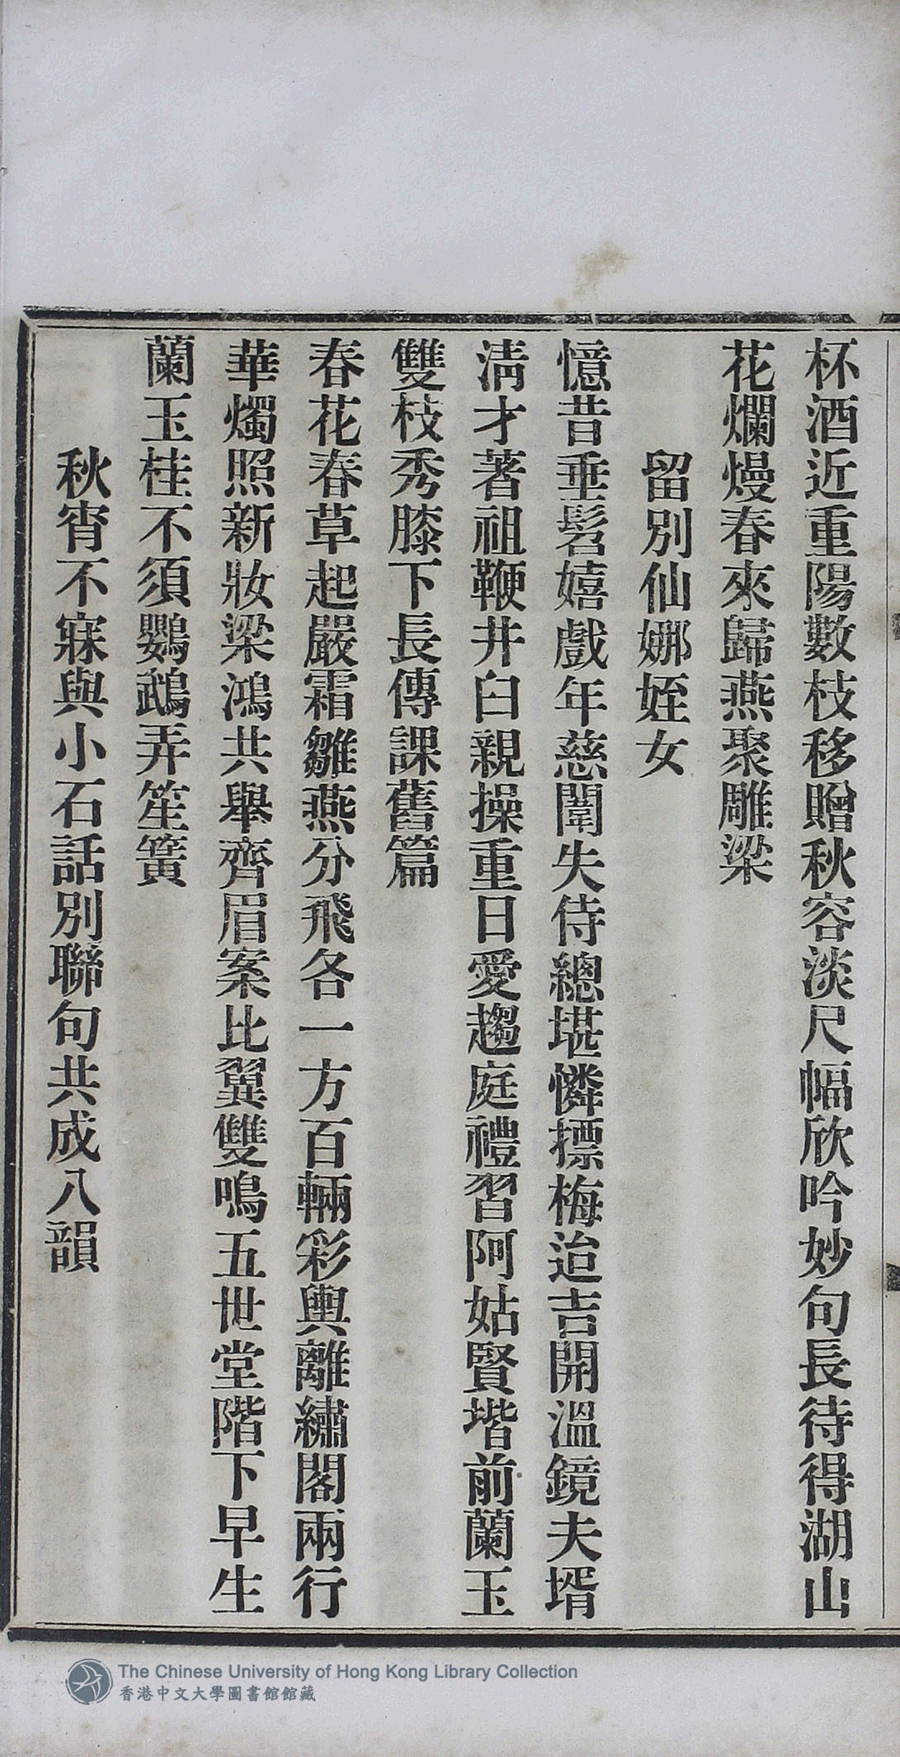 杯酒近重陽數枝移贈秋容淡尺幅欣吟妙句長待得湖山
花爛熳春來歸燕聚雕梁
留別仙娜姪女
憶昔垂髫嬉戲年慈闈失侍總堪憐摽梅迨吉開溫鏡夫壻
淸才著祖鞭井臼親操重日愛趨庭禮習阿姑賢堦前蘭玉
雙枝秀膝下長傳課舊篇
春花春草起嚴霜雛燕分飛各一方百輛彩輿離繡閣兩行
華燭照新妝梁鴻共舉齊眉案比翼雙鳴五世堂階下早生
蘭玉桂不須鸚鵡弄笙簧
秋宵不寐與小石話別聯句共成八韻
The Chinese University of Hong Kong Library Collection
香港中文大學圖書館館藏